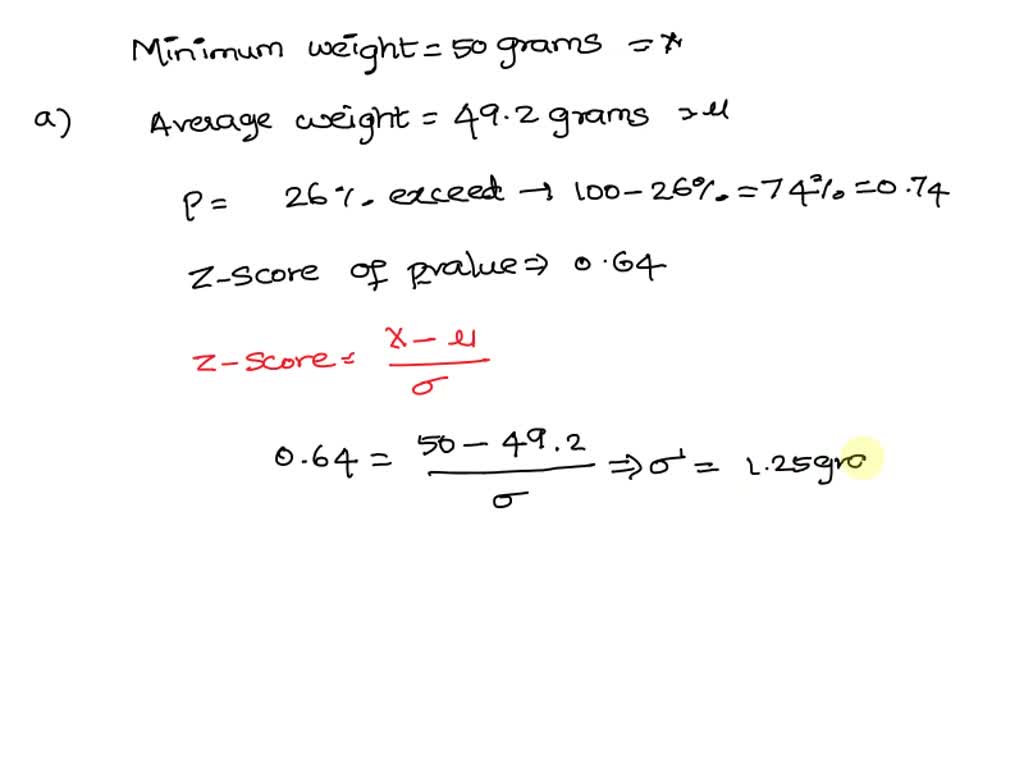 Minimum weight = 50 grams = x
a) Average weight = 49.2 grams = μ
P = 26% exceed → 100 - 26% = 74% = 0.74
Z-score of pvalue ⇒ 0.64
Z-score = x - μ / σ
0.64 = 50 - 49.2 / σ ⇒ σ = 1.25gra